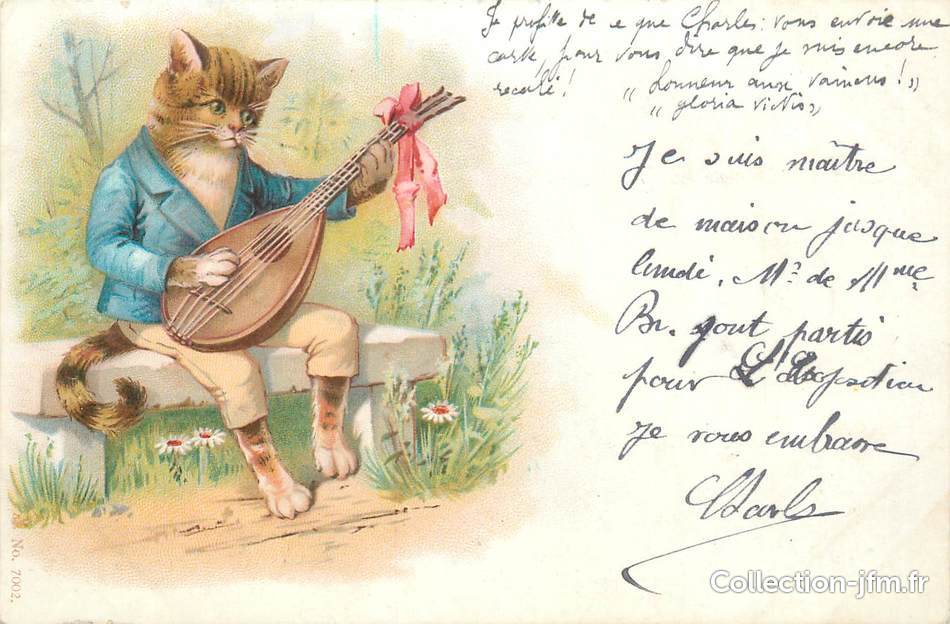 Je profite de ce que Charles vous envoie une
carte, pour vous dire que je suis encore
recalé ! „ honneur aux vaincus ! „
„ gloria victis „
Je suis maître
de maison jusque
lundi. Mr de Mme
Br. sont partis
pour L'Exposition
je vous embrasse
Charles
No. 7002.
Collection-jfm.fr